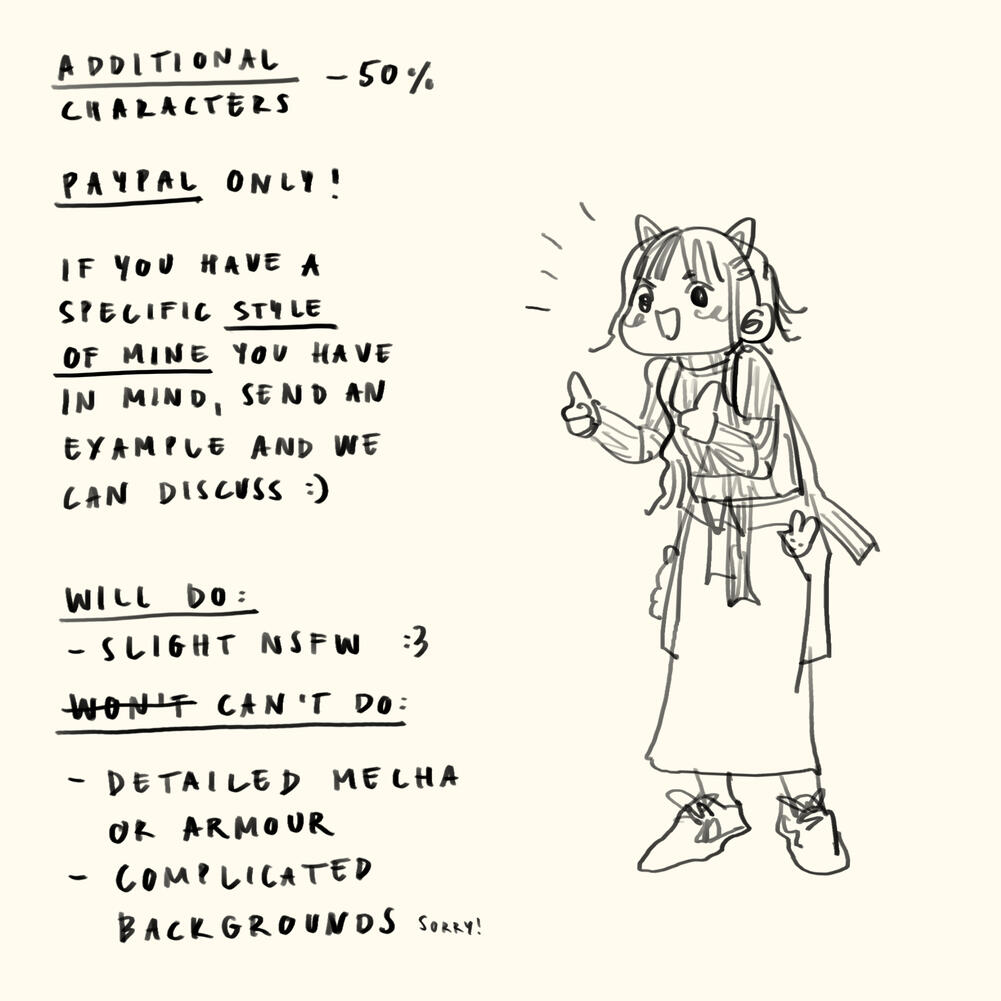 ADDITIONAL
CHARACTERS - 50%
PAYPAL ONLY!
IF YOU HAVE A
SPECIFIC STYLE
OF MINE YOU HAVE
IN MIND, SEND AN
EXAMPLE AND WE
CAN DISCUSS :)
WILL DO:
- SLIGHT NSFW :3
WON'T CAN'T DO:
- DETAILED MECHA
OR ARMOUR
- COMPLICATED
BACKGROUNDS SORRY!